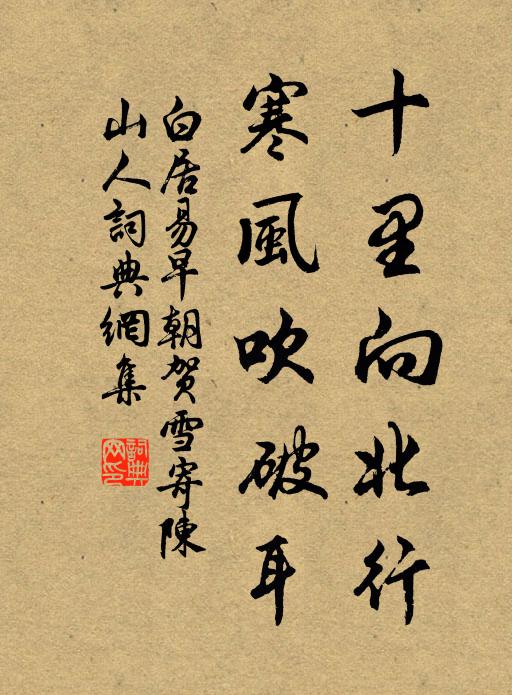 十里向北行
寒風吹破耳
白居易早朝賀雪寄陳
山人詞典網集
詞典
网印